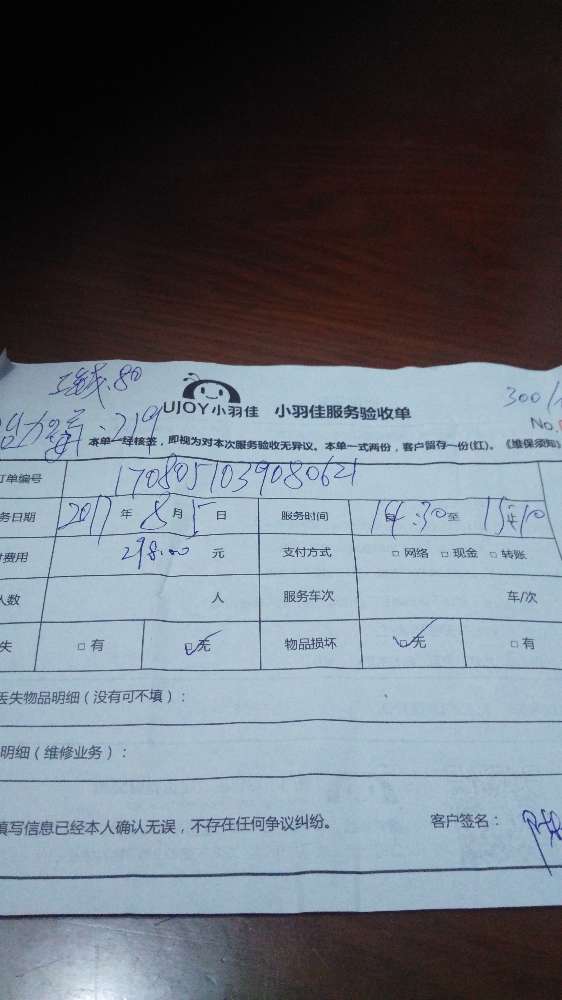 工钱:80
300/
UJOY小羽佳 小羽佳服务验收单
:219
No.
本单一经核签,即视为对本次服务验收无异议。本单一式两份,客户留存一份(红)。《维保须知》
订单编号 1708051039080621
务日期 2017 年 8 月 5 日 服务时间 14:30 至 15:10
费用 298.00 元 支付方式 □ 网络 □ 现金 □ 转账
人数 人 服务车次 车/次
失 □ 有 ☑ 无 物品损坏 ☑ 无 □ 有
丢失物品明细(没有可不填):
明细(维修业务):
填写信息已经本人确认无误,不存在任何争议纠纷。 客户签名: